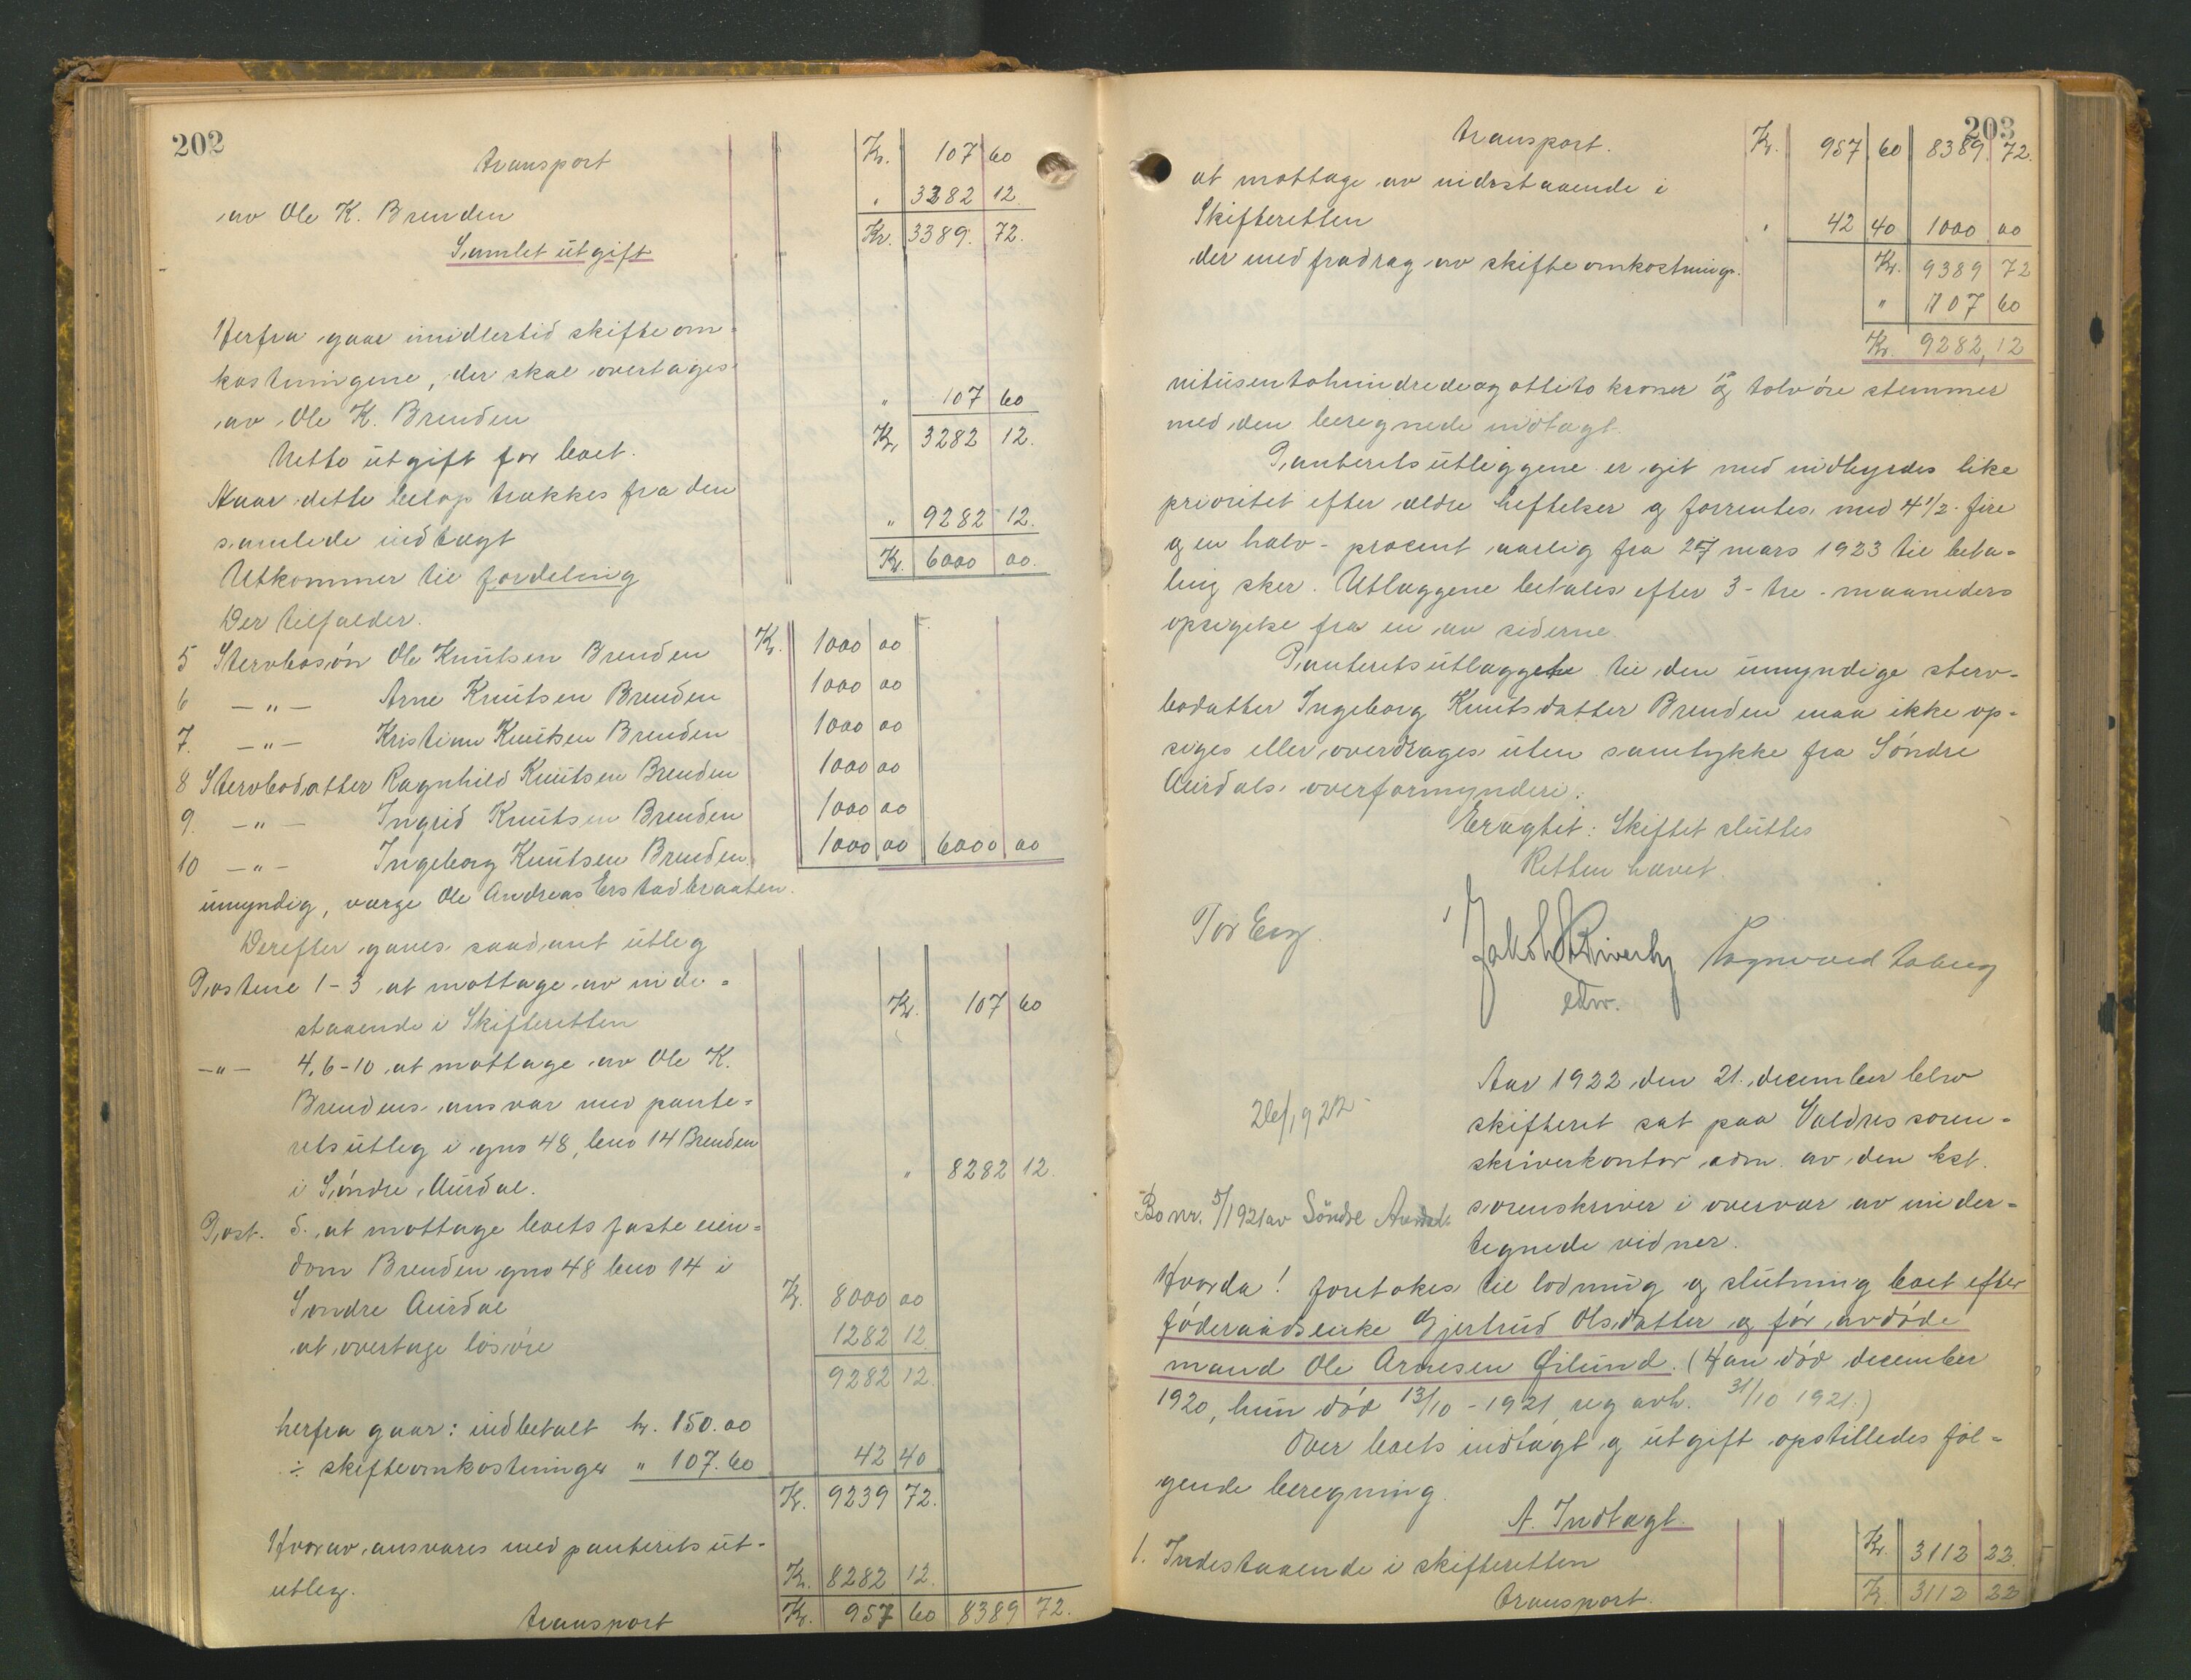 202
transport Kr. 107 60
av Ole K. Brenden " 3282 12.
Samlet utgift Kr. 3389. 72.
Herfra gaar imidlertid skifteom=
kostningene, der skal overtages
av Ole K. Brenden " 107 60
Netto utgift for boet. Kr. 3282 12.
Naar dette beløp trækkes fra den
samlede indtægt " 9282 12.
Utkommer til fordeling Kr. 6000 00.
Der tilfalder.
5 Stervbosøn Ole Knutsen Brenden Kr. 1000 00
6 —"— Arne Knutsen Brenden 1000 00
7. —"— Kristian Knutsen Brenden 1000 00
8 Stervbodatter Ragnhild Knutsen Brenden 1000 00
9. —"— Ingrid Knutsen Brenden 1000 00
10 —"— Ingeborg Knutsen Brenden. 1000 00 6000 00
umyndig, værge Ole Andreas Erstadbraaten.
Derefter gaves saadant utleg
Postene 1-3 at mottage av inde=
staaende i Skifteretten Kr. 107 60
—"— 4, 6-10 at mottage av Ole K.
Brendens ansvar med pante=
retsutleg i gno 48, bno 14 Brenden
i Søndre Aurdal. " 8282 12.
Post. 5. at mottage boets faste eien=
dom Brenden gno 48 bno 14 i
Søndre Aurdal Kr. 8000 00
at overtage løsøre 1282 12
9282 12.
herfra gaar: indbetalt kr. 150.00
÷ skifteomkostninger " 107.60 42 40
Kr. 9239 72.
Hvorav ansvares med panterets ut-
utleg. Kr. 8282 12.
transport Kr. 957 60 8389 72.
203
transport. Kr. 957 60 8389 72.
at mottage av indestaaende i
Skifteretten " 42 40 1000 00
der med fradrag av skifteomkostninge. Kr. 9389 72
" 107 60
Kr. 9282,12
nitusentohundredeogottito kroner og tolv øre stemmer
med den beregnede indtægt.
Panteretsutlæggene er git med indbyrdes like
prioritet efter ældre heftelser og forrentes med 4 1/2 - fire
og en halv - procent aarlig fra 27 mars 1923 til beta=
ling sker. Utlæggene betales efter 3 - tre - maaneders
opsigelse fra en av siderne.
Panteretsutlægget til den umyndige sterv-
bodatter Ingeborg Knutsdatter Brenden maa ikke op-
siges eller overdrages uten samtykke fra Søndre
Aurdals overformynderi.
Eragtet: Skiftet sluttes
Retten hævet.
Tor Eng.
edv.
Aar 1922 den 21. december blev
skifteret sat paa Valdres soren=
skriverkontor adm. av den kst.
sorenskriver i overvær av under=
tegnede vidner.
Bo nr. 5/1921 av Søndre Aurdal.
Hvorda! foretokes til lodning og slutning boet efter
føderaadsenke Gjertrud Olsdatter og før avdøde
mand Ole Arnesen Øilund. (Han død december
1920, hun død 13/10-1921, seg avh. 31/10 1921.)
Over boets indtægt og utgift opstilledes føl=
gende beregning.
A. Indtægt.
1. Indestaaende i skifteretten Kr. 3112 22.
transport. Kr. 3112 22